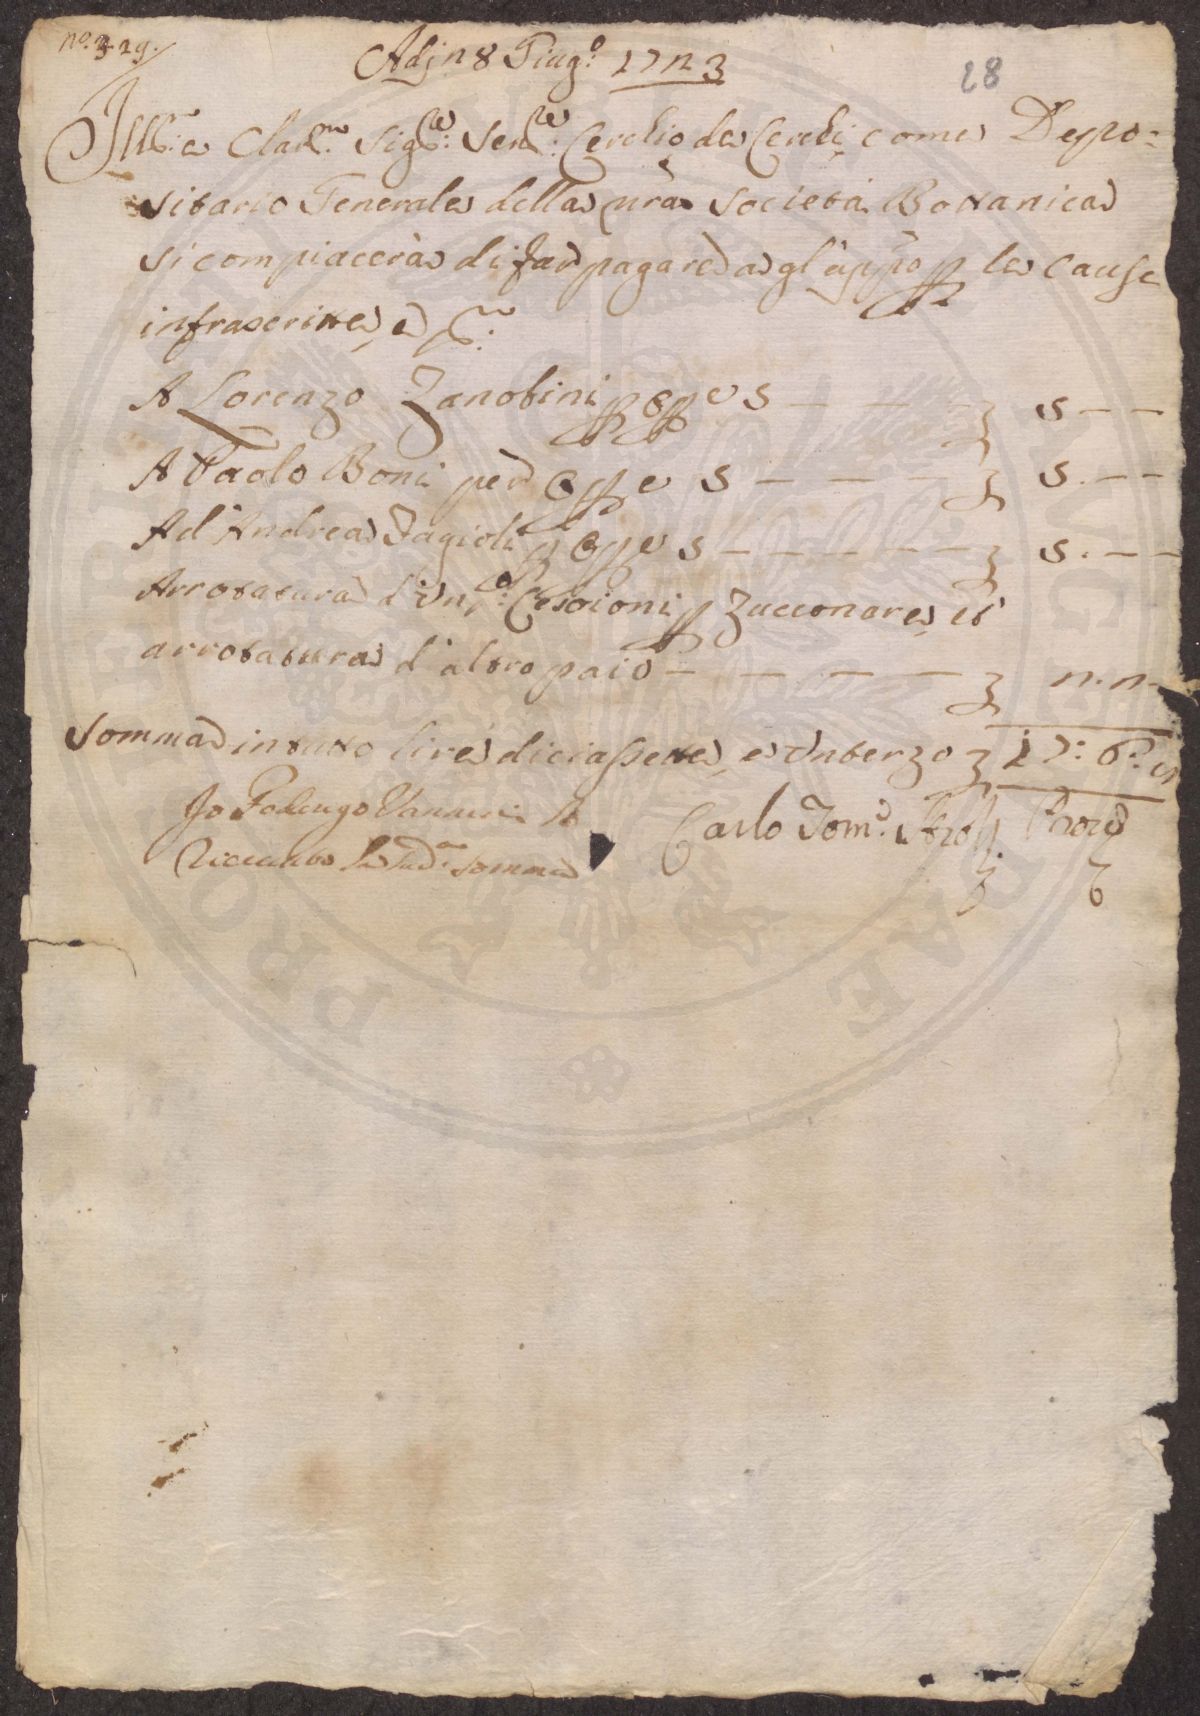 no. 329.
28
Adj n8 Giug.o 1723
Ill. e Clar. Sig.re Sen.re Cerchio de Cerchi come Depo=
sitario Generale della nra Società Bottanica
si compiacerà di far pagare a gl'appo p le cause
infrascritte, e p.
A Lorenzo Zanobini p op e 5 — — — 5 — —
A Paolo Boni per op e 5 — — — 5. — —
Ad Andrea Fagioli p op e 5 — — — — — 5. — —
Arrotatura d'un p.o Cesoioni p Zucconare, et
arrotatura d'altro paio — — — — n.n —
Somma in tutto lire diciassette, e un terzo 17: 6:
Io Vannucci
la sud.a somma
Carlo Tom.o Prov.e